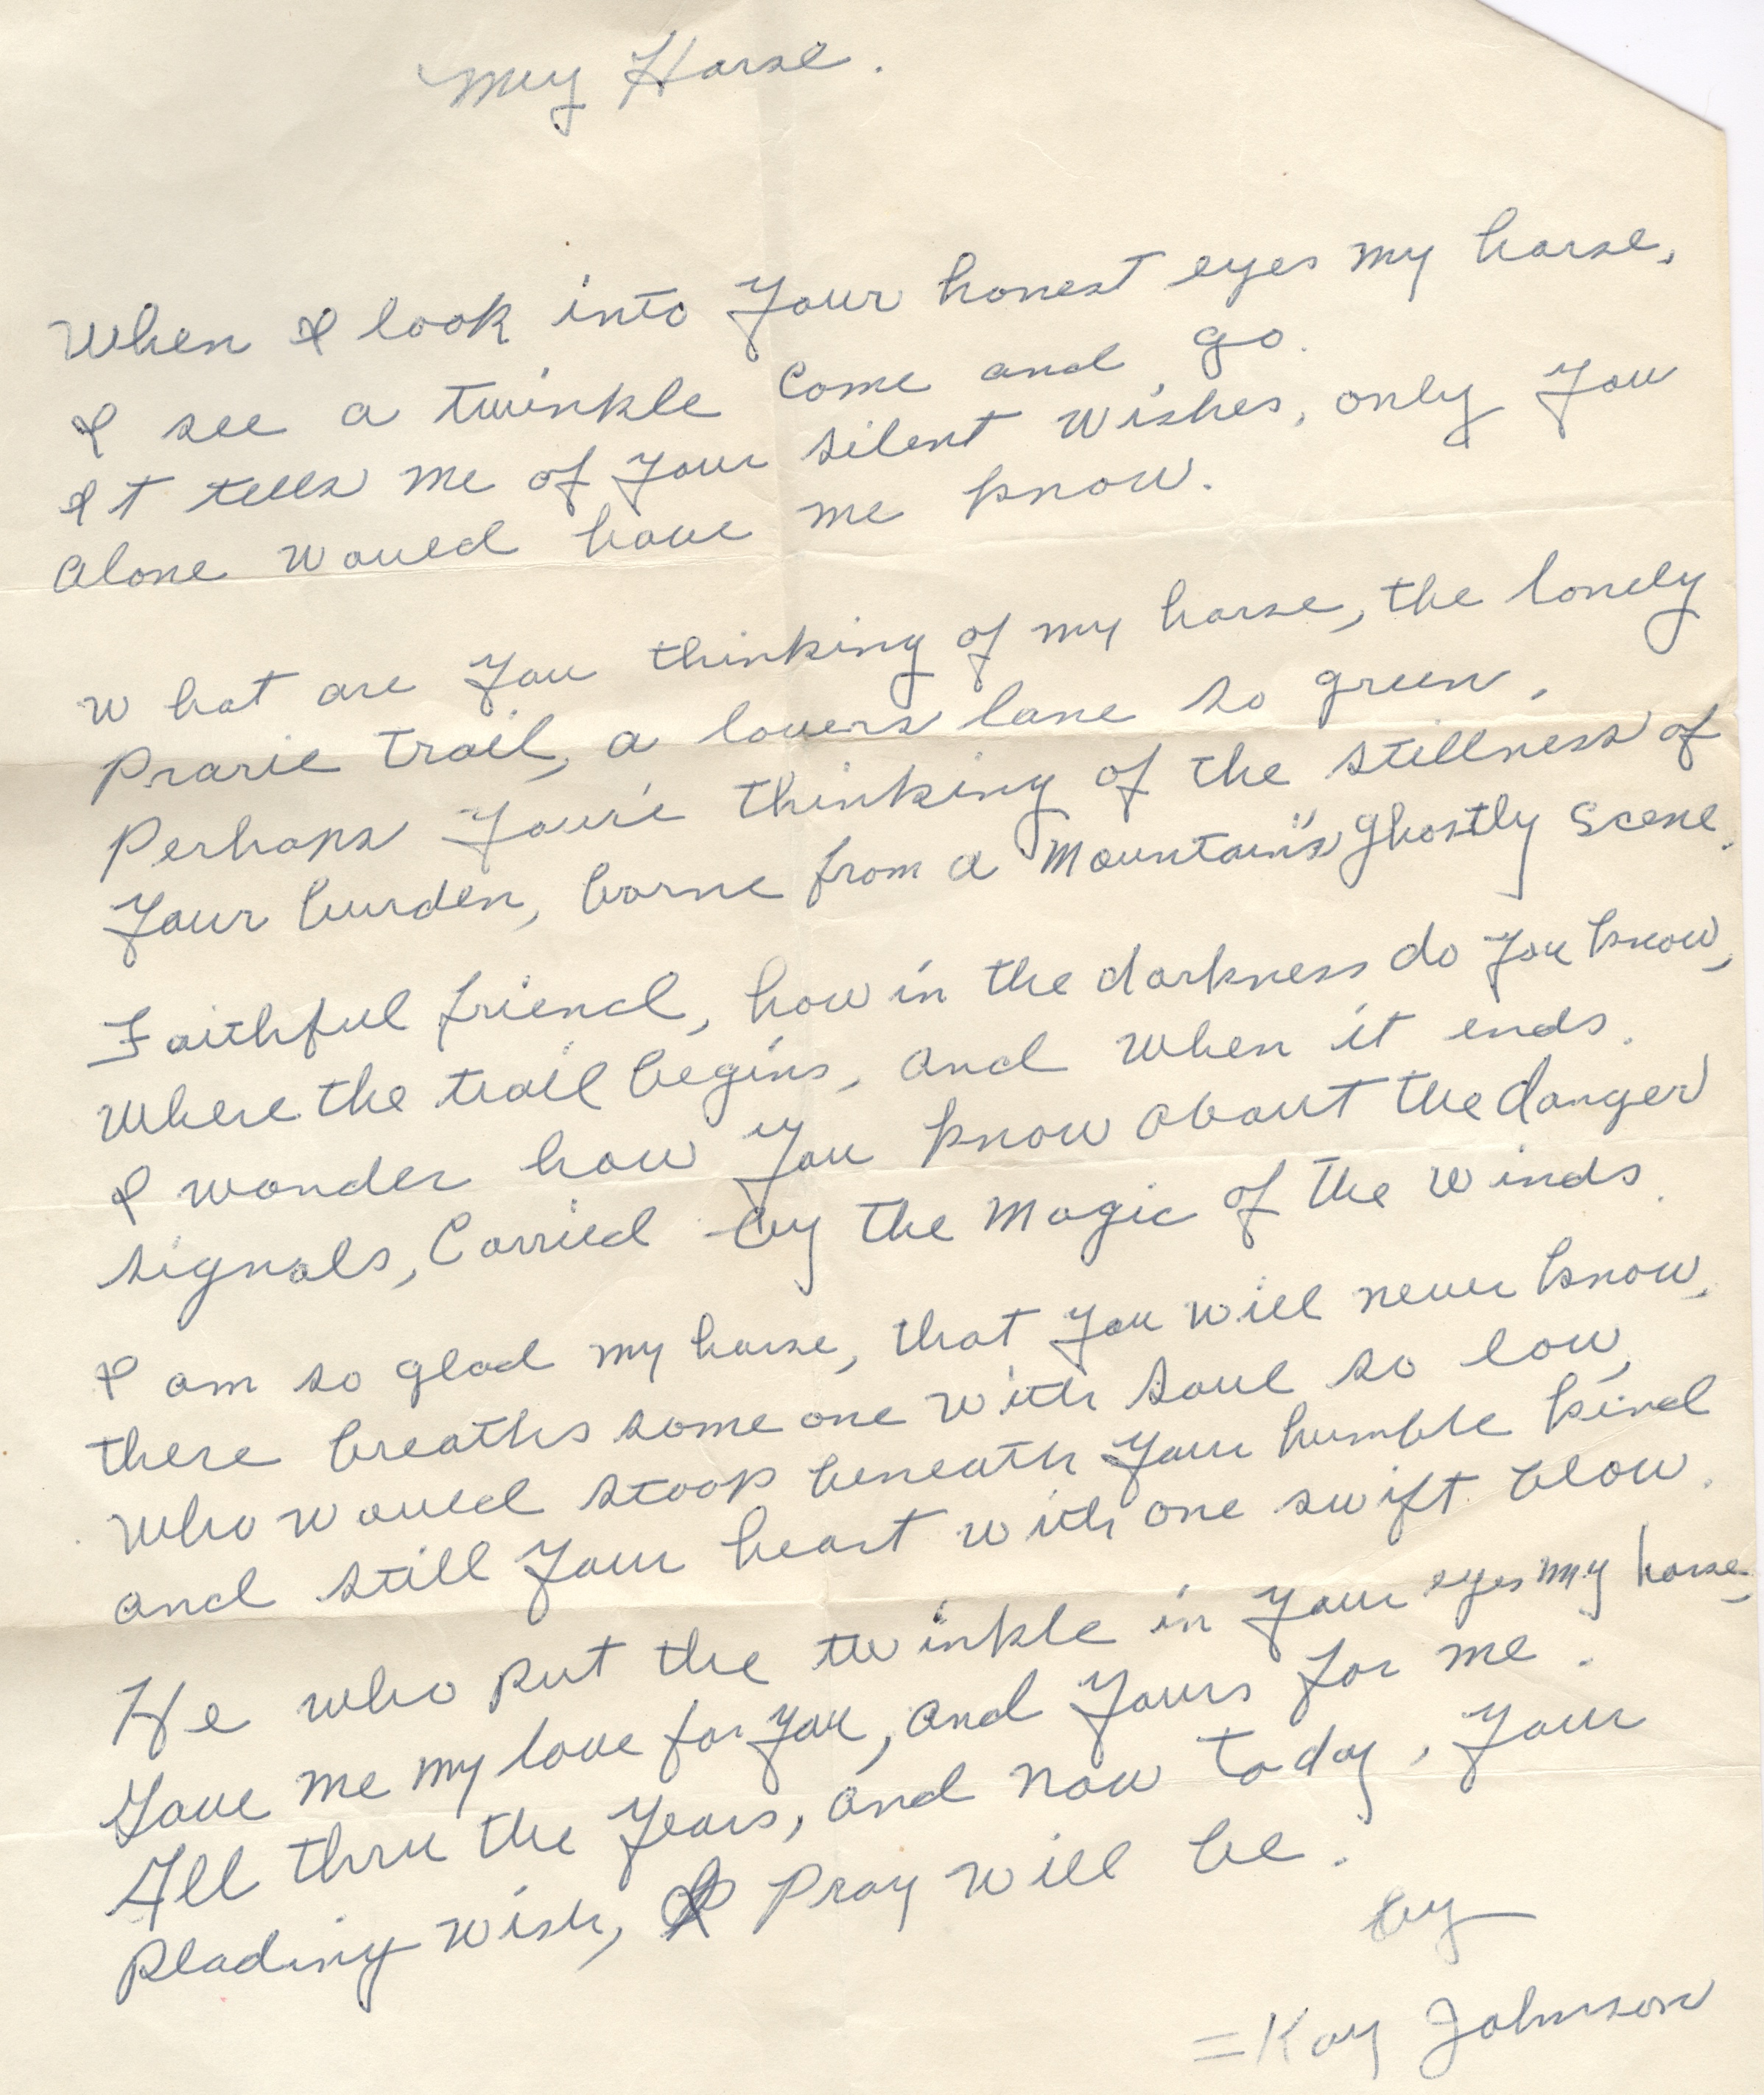 My Horse.
When I look into Your honest eyes my horse,
I see a twinkle Come and go.
It tells me of Your silent wishes, only You
Alone would have me know.
What are You thinking of my horse, the lonely
Prarie trail, a lovers lane so green,
Perhaps You're thinking of the stillness of
Your burden, borne from a Mountain's Ghostly Scene.
Faithful friend, how in the darkness do You know,
Where the trail begins, and when it ends.
I wonder how You know about the danger
signals, Carried by the Magic of the winds.
I am so glad my horse, that You will never know,
there breaths some one with soul so low,
Who would stoop beneath Your humble kind
and still Your heart with one swift blow.
He who put the twinkle in Your eyes my horse,
Gave me my love for You, and Yours for me.
All thru the Years, and now today, Your
Plading wish, I Pray will be.
by
=Kay Johnson